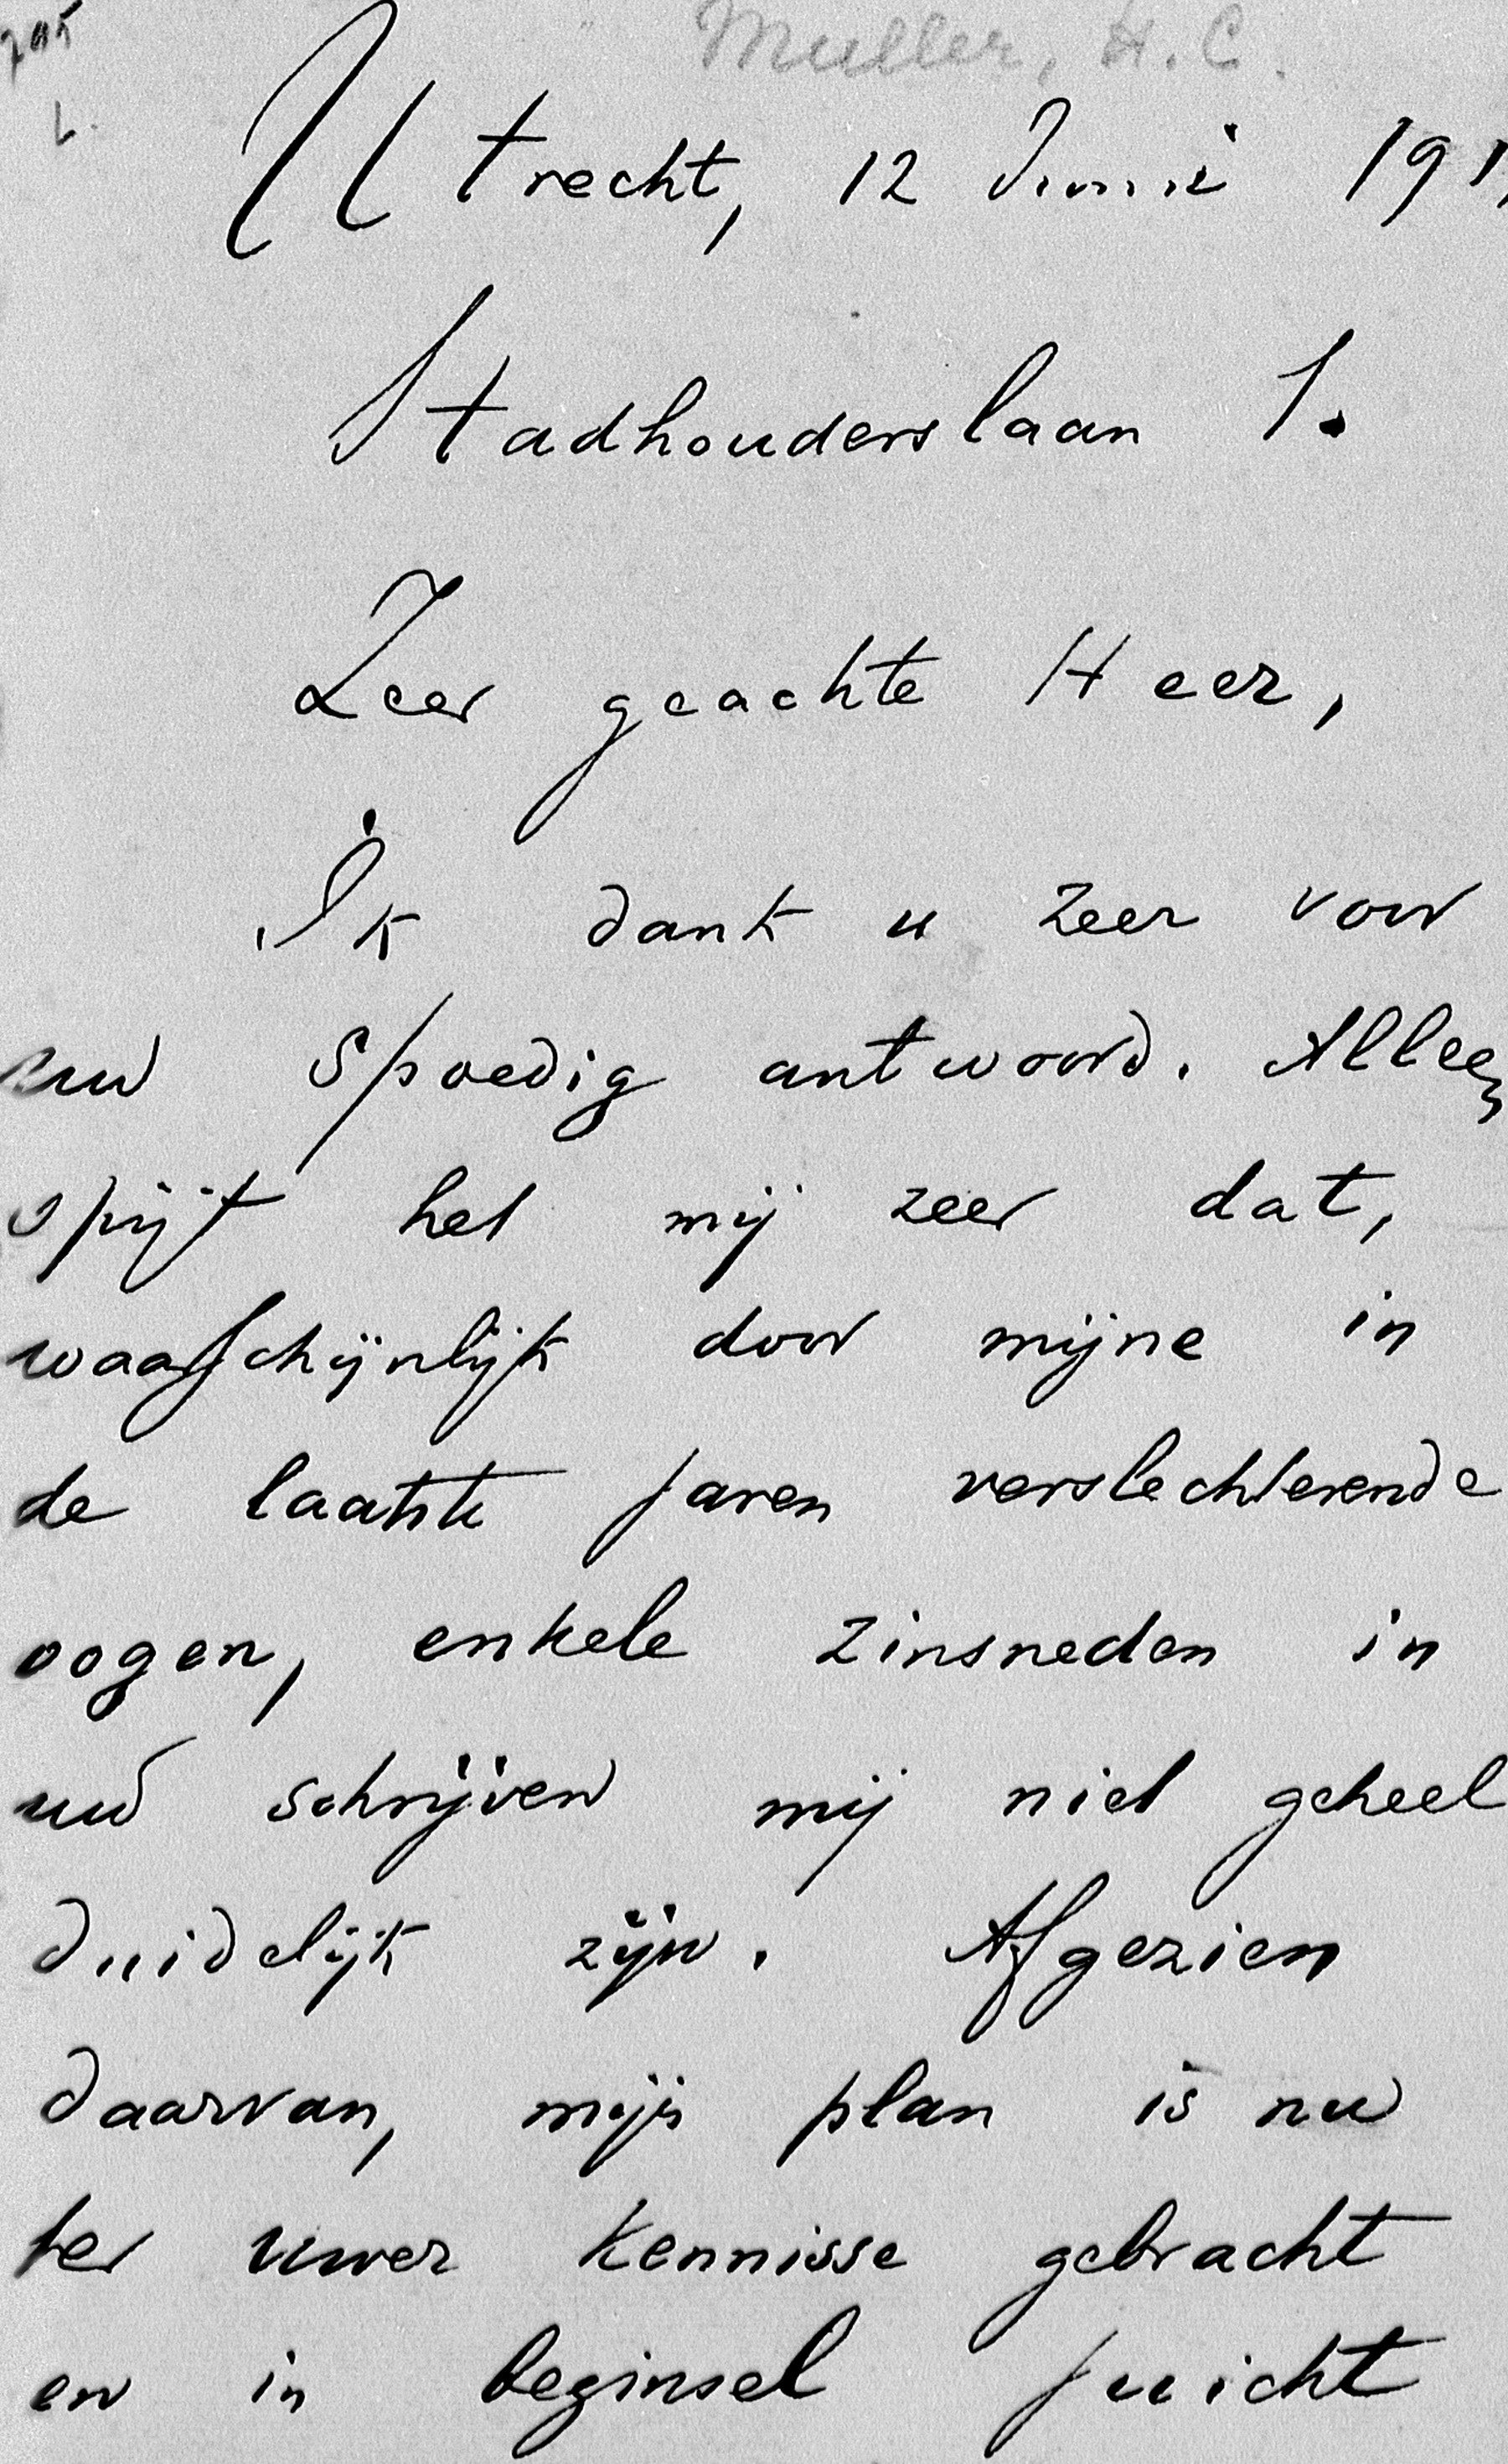 Muller, H. C.
Utrecht, 12 Juni 191
Stadhouderslaan 1.
Zeer geachte Heer,
Ik dank u zeer voor
uw spoedig antwoord. Alleen
spijt het mij zeer dat,
waarschijnlijk door mijne in
de laatste jaren verslechterende
oogen, enkele zinsneden in
uw schrijven mij niet geheel
duidelijk zijn. Afgezien
daarvan, mijn plan is nu
ter uwer kennisse gebracht
en in beginsel juicht